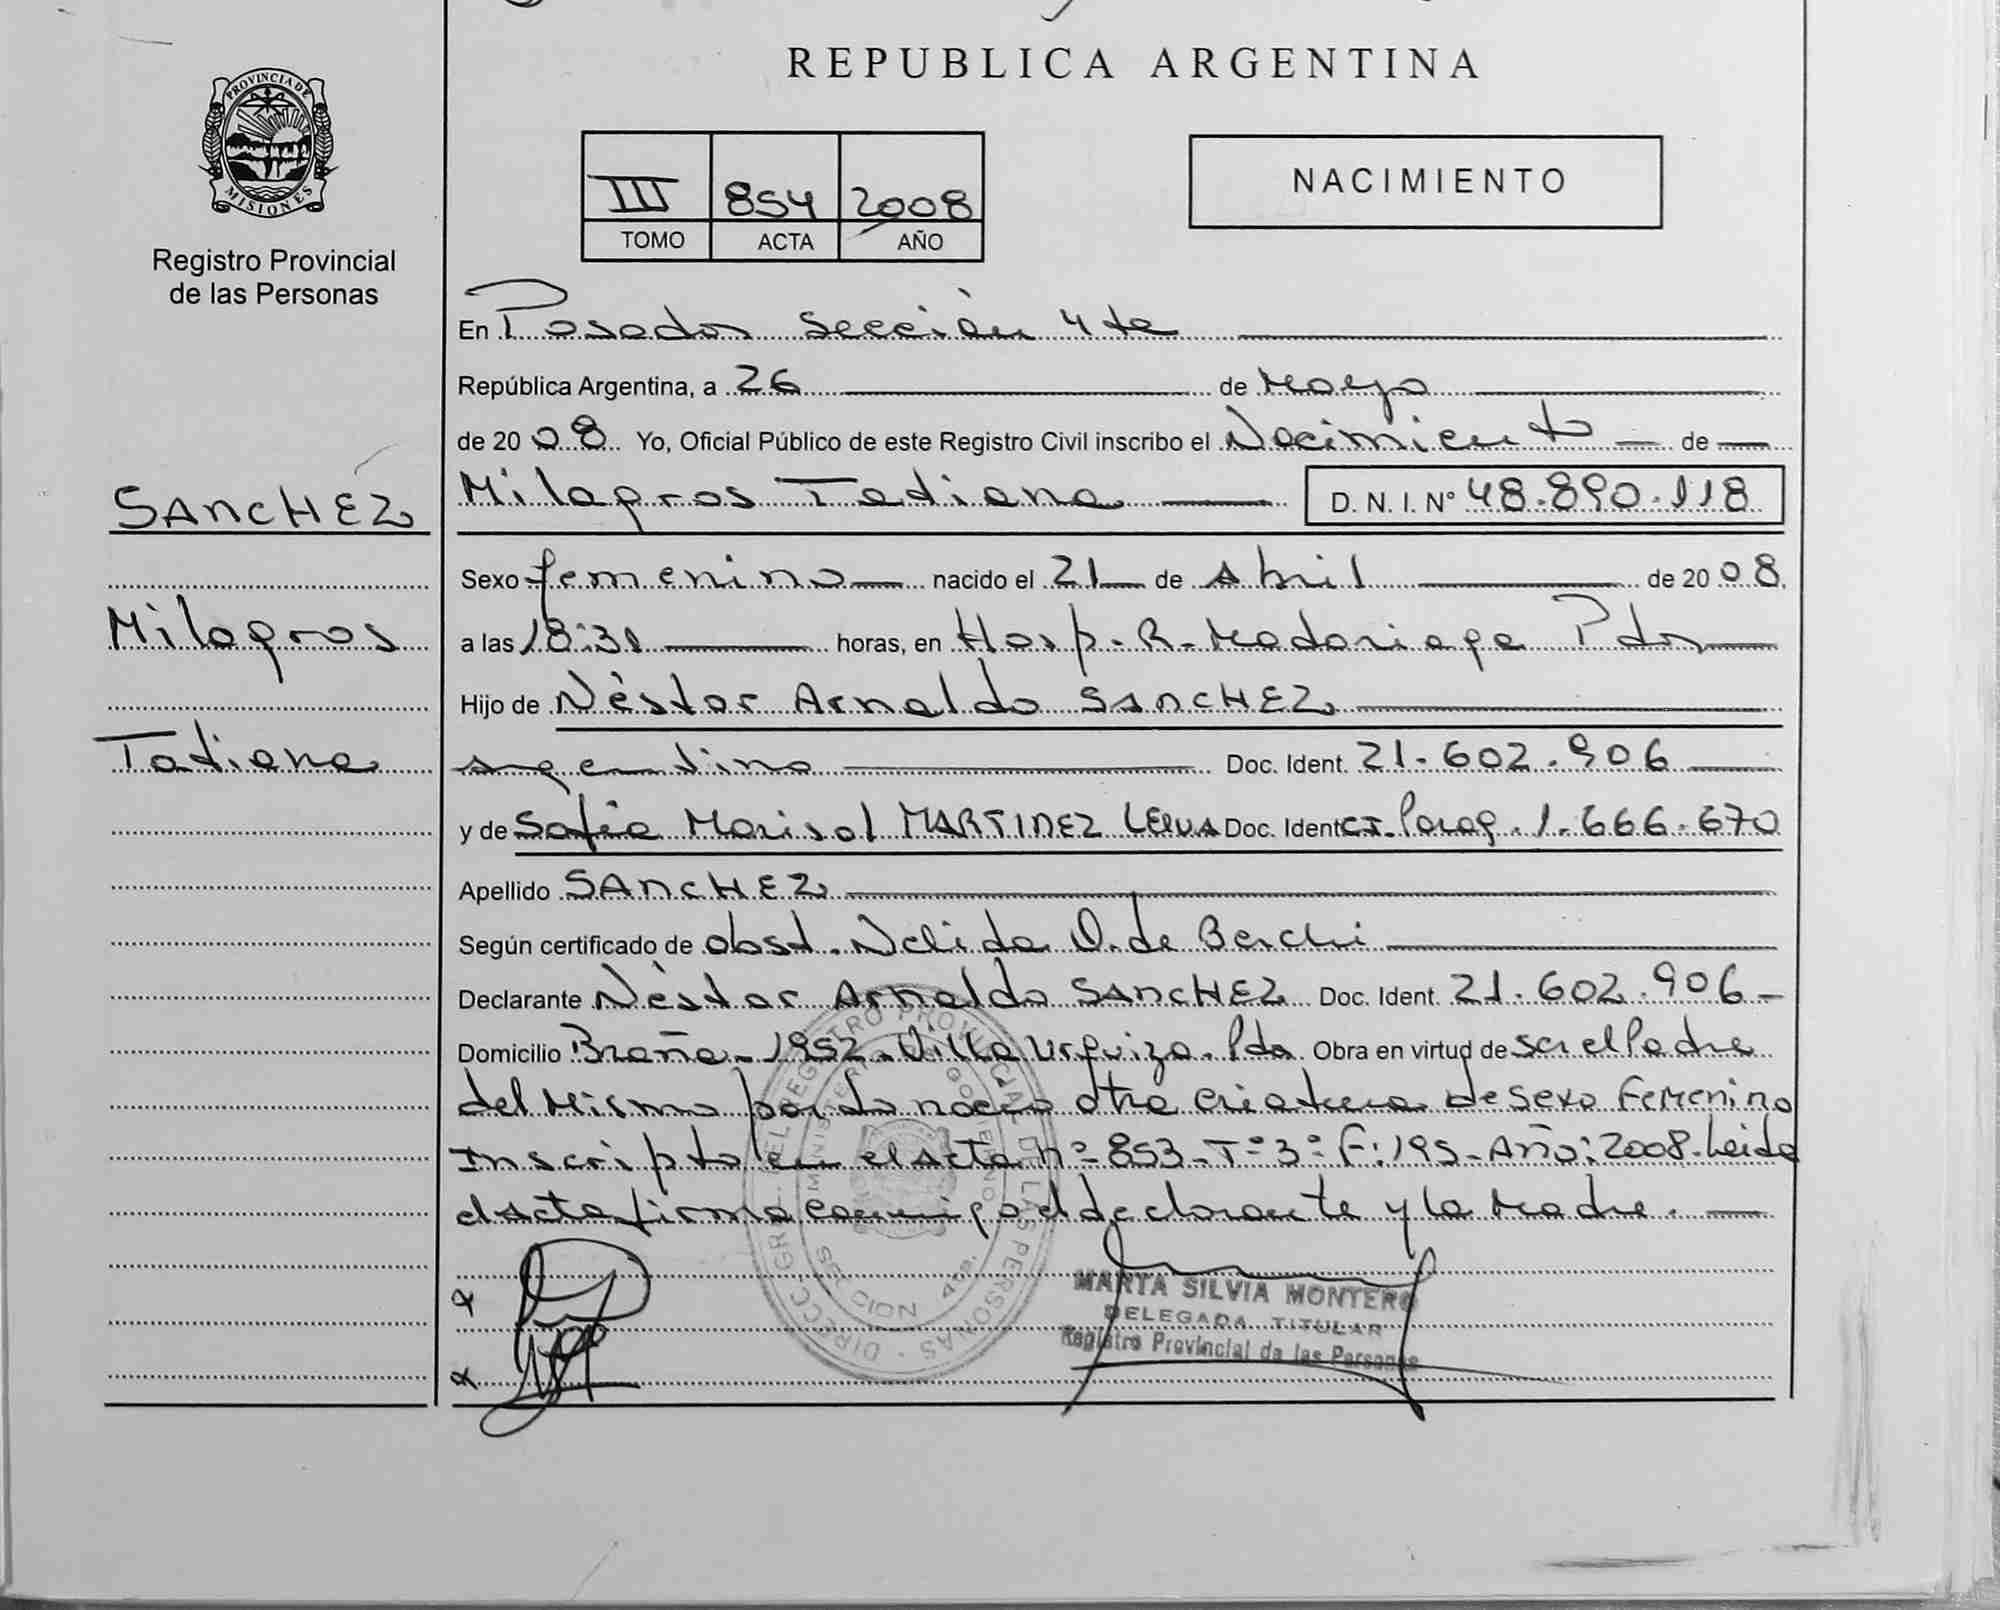 REPUBLICA ARGENTINA
PROVINCIA DE MISIONES
Registro Provincial
de las Personas
III 854 2008
TOMO ACTA AÑO
NACIMIENTO
En Posadas Sección 4ta
República Argentina, a 26 de Mayo
de 2008 Yo, Oficial Público de este Registro Civil inscribo el Nacimiento de
Milagros Tatiana D. N. I. N° 48.890.118
SANCHEZ
Milagros
Tatiana
Sexo femenino nacido el 21 de Abril de 2008
a las 18:31 horas, en Hosp. R. Madariaga Pdas
Hijo de Néstor Arnaldo SANCHEZ
argentino Doc. Ident. 21.602.906
y de Sofía Marisol MARTINEZ Doc. Ident C.I. Parag. 1.666.670
Apellido SANCHEZ
Según certificado de obst. Nelida O. de Berchi
Declarante Néstor Arnaldo SANCHEZ Doc. Ident. 21.602.906
Domicilio Braña 1952 Villa Urquiza. Pdas. Obra en virtud de ser el Padre
del Mismo otra criatura de sexo Femenino
Inscripto en el acta n° 853 T° 3° F: 195 Año: 2008. Leida
el acta firma conmigo el declarante y la Madre.
DIRECC. GRAL. DEL REGISTRO PROVINCIAL DE LAS PERSONAS
MINISTERIO GOBIERNO
SECCION 4ta.
MARTA SILVIA MONTERO
DELEGADA TITULAR
Registro Provincial de las Personas